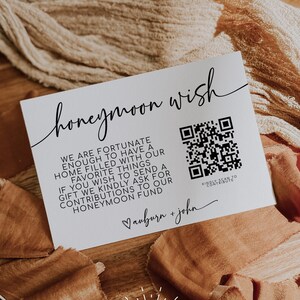 honeymoon wish
WE ARE FORTUNATE
ENOUGH TO HAVE A
HOME FILLED WITH OUR
FAVORITE THINGS
IF YOU WISH TO SEND A
GIFT WE KINDLY ASK FOR
CONTRIBUTIONS TO OUR
HONEYMOON FUND
auburn + john